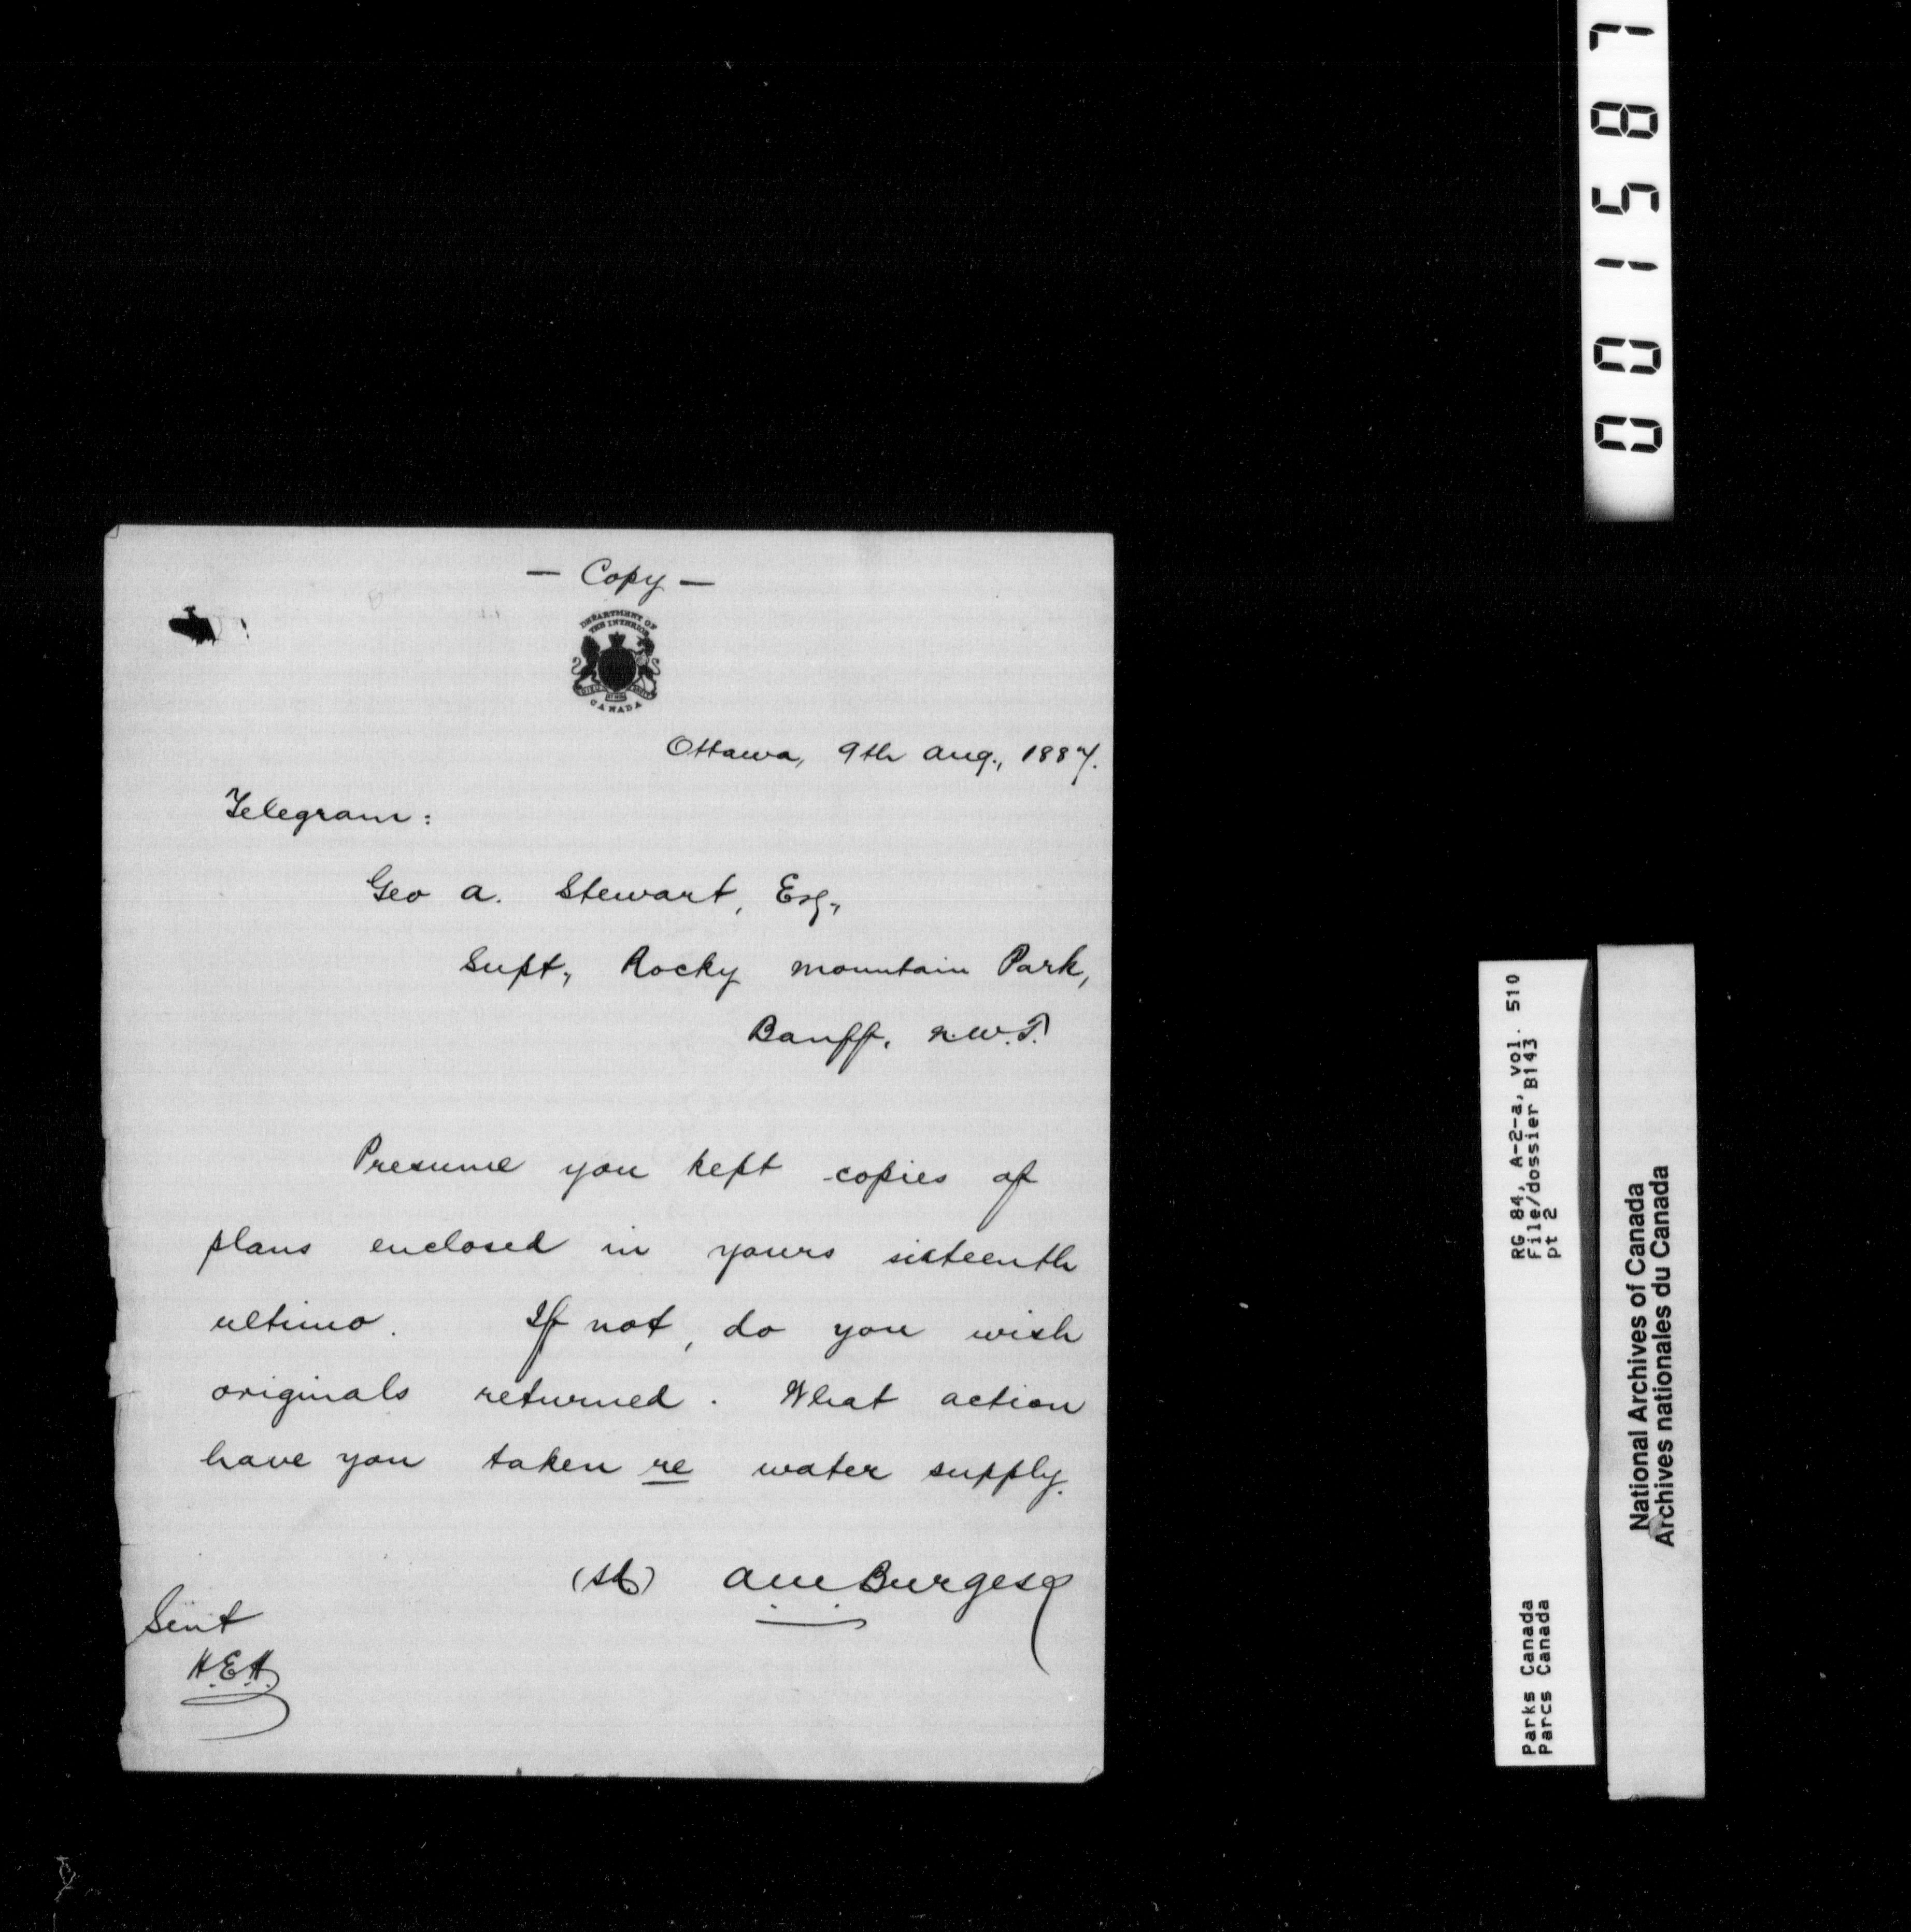 — Copy —
DEPARTMENT OF
THE INTERIOR
CANADA
Ottawa, 9th Aug., 1887.
Telegram:
Geo A. Stewart, Esq.,
Supt., Rocky Mountain Park,
Banff, N.W.T.
Presume you kept copies of
plans enclosed in yours sixteenth
ultimo. If not, do you wish
originals returned. What action
have you taken re water supply.
(sd) A.M. Burgess
Sent
H.E.H.
001587
RG 84, A-2-a, vol. 510
File/dossier B143
pt 2
Parks Canada
Parcs Canada
National Archives of Canada
Archives nationales du Canada